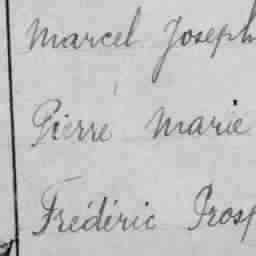 Marcel Joseph
Pierre Marie
Frédéric Prosp